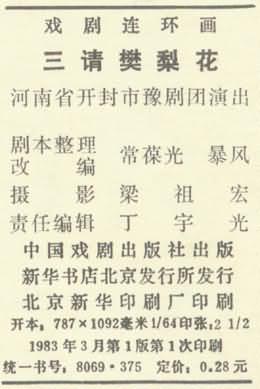 戏剧连环画
三请樊梨花
河南省开封市豫剧团演出
剧本整理
改编 常葆光 暴风
摄影 梁祖宏
责任编辑 丁宇光
中国戏剧出版社出版
新华书店北京发行所发行
北京新华印刷厂印刷
开本：787×1092毫米1/64印张：2 1/2
1983年3月第1版第1次印刷
统一书号：8069·375 定价：0.28元